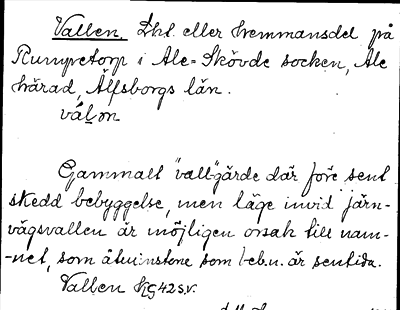 Vallen. Lht. eller hemmansdel på
Rumpetorp i Ale-Skövde socken, Ale
härad, Älfsborgs län.
vál̲m
Gammalt "vall"gärde där före sent
skedd bebyggelse, men läge invid järn-
vägsvallen är möjligen orsak till nam-
-net, som åtminstone som beb.n. är sentida.
Vallen KG42s.v.